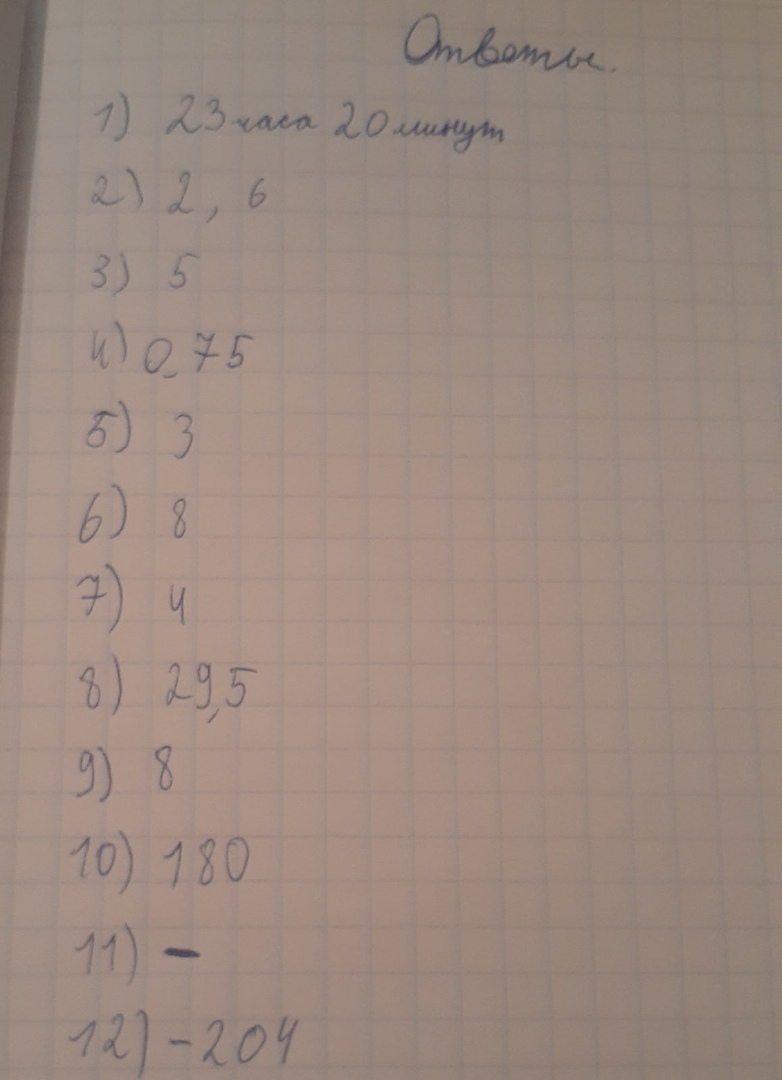 Ответы.
1) 23 часа 20 минут
2) 2, 6
3) 5
4) 0,75
5) 3
6) 8
7) 4
8) 29,5
9) 8
10) 180
11) -
12) -204